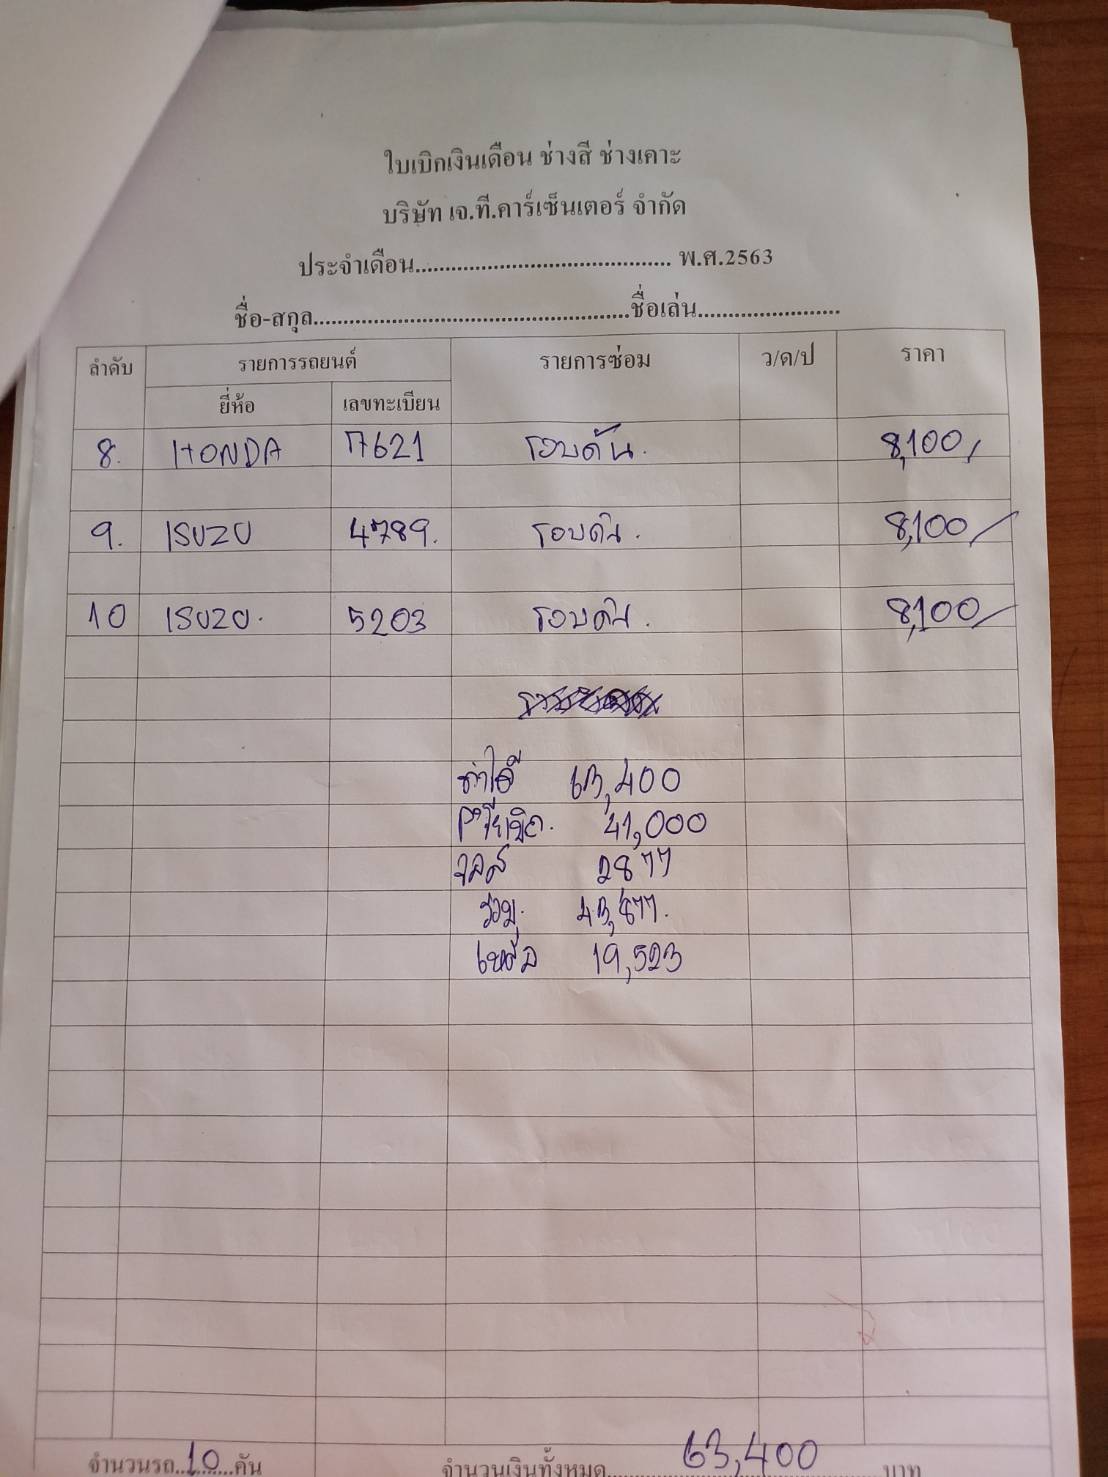 ใบเบิกเงินเดือน ช่างสี ช่างเคาะ
บริษัท เจ.ที.คาร์เซ็นเตอร์ จำกัด
ประจำเดือน.......................................... พ.ศ.2563
ชื่อ-สกุล....................................................ชื่อเล่น........................
ลำดับ รายการรถยนต์ รายการซ่อม ว/ด/ป ราคา
ยี่ห้อ เลขทะเบียน
8. HONDA 7621 รอบคัน. 8,100/
9. ISUZU 4789. รอบคัน. 8,100/
10 ISUZU. 5203 รอบคัน. 8,100/
63,400
41,000
2877
รวม. 43,877.
เหลือ 19,523
จำนวนรถ..10....คัน จำนวนเงินทั้งหมด.........63,400.........บาท